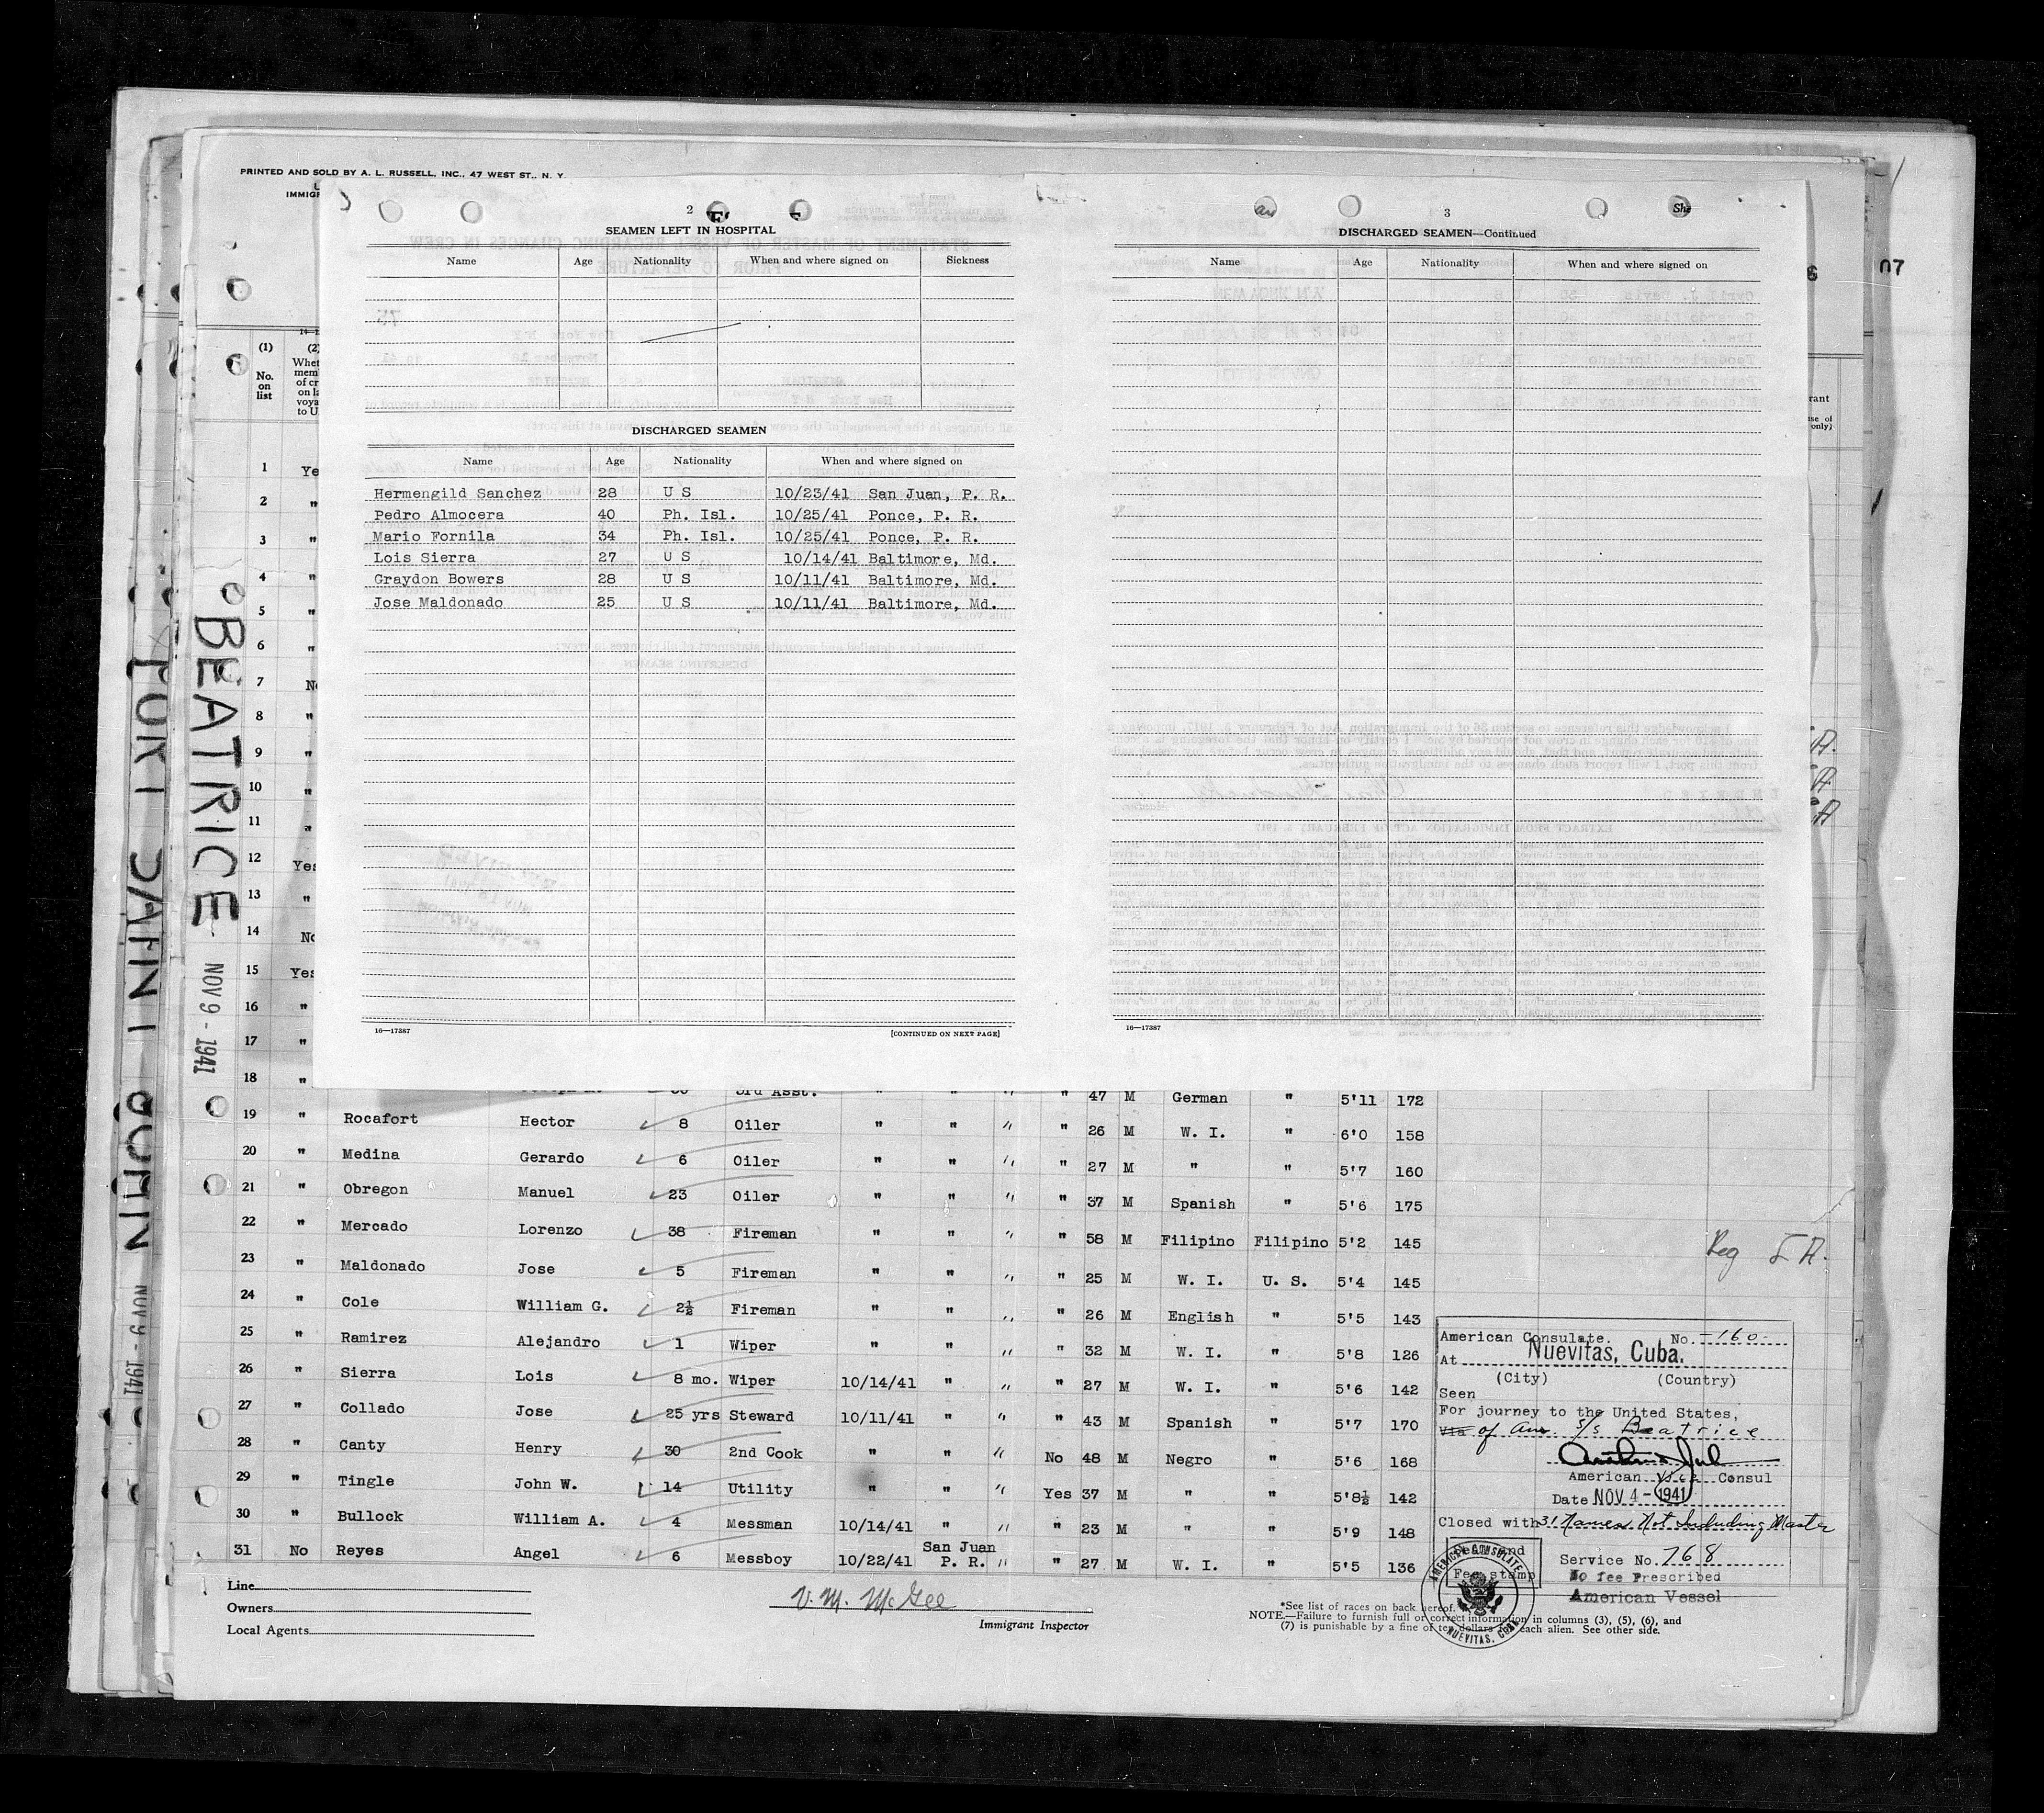 PRINTED AND SOLD BY A. L. RUSSELL, INC., 47 WEST ST., N. Y.
IMMIGR
2
SEAMEN LEFT IN HOSPITAL
Name Age Nationality When and where signed on Sickness
DISCHARGED SEAMEN
Name Age Nationality When and where signed on
Hermengild Sanchez 28 U S 10/23/41 San Juan, P. R.
Pedro Almocera 40 Ph. Isl. 10/25/41 Ponce, P. R.
Mario Fornila 34 Ph. Isl. 10/25/41 Ponce, P. R.
Lois Sierra 27 U S 10/14/41 Baltimore, Md.
Graydon Bowers 28 U S 10/11/41 Baltimore, Md.
Jose Maldonado 25 U S 10/11/41 Baltimore, Md.
16—17387 [CONTINUED ON NEXT PAGE]
3
She
DISCHARGED SEAMEN—Continued
Name Age Nationality When and where signed on
16—17387
07
(1) (2)
No. on list
Whet
mem
of cr
on la
voya
to U
rant
use of
only)
1 Ye
2 "
3 "
4 "
5 "
6 "
7 No
8 "
9 "
10 "
11 "
12 Yes
13 "
14 No
15 Yes
16 "
17 "
18 " 3rd Asst. " " " " 47 M German " 5'11 172
19 " Rocafort Hector 8 Oiler " " " " 26 M W. I. " 6'0 158
20 " Medina Gerardo 6 Oiler " " " " 27 M " " 5'7 160
21 " Obregon Manuel 23 Oiler " " " " 37 M Spanish " 5'6 175
22 " Mercado Lorenzo 38 Fireman " " " " 58 M Filipino Filipino 5'2 145 Reg
23 " Maldonado Jose 5 Fireman " " " " 25 M W. I. U. S. 5'4 145
24 " Cole William G. 2½ Fireman " " " " 26 M English " 5'5 143
25 " Ramirez Alejandro 1 Wiper " " " " 32 M W. I. " 5'8 126
26 " Sierra Lois 8 mo. Wiper 10/14/41 " " " 27 M W. I. " 5'6 142
27 " Collado Jose 25 yrs Steward 10/11/41 " " " 43 M Spanish " 5'7 170
28 " Canty Henry 30 2nd Cook " " " No 48 M Negro " 5'6 168
29 " Tingle John W. 14 Utility " " " Yes 37 M " " 5'8½ 142
30 " Bullock William A. 4 Messman 10/14/41 " " " 23 M " " 5'9 148
31 No Reyes Angel 6 Messboy 10/22/41 San Juan P. R. " " 27 M W. I. " 5'5 136
American Consulate. No. -160-
At Nuevitas, Cuba.
(City) (Country)
Seen
For journey to the United States,
Via of Am. S/S Beatrice
American Vice Consul
Date NOV 4 - 1941
Closed with 31 Names Not Including Master
Fee stamp
Service No. 768
No fee Prescribed
American Vessel
AMERICAN CONSULATE
NUEVITAS, CUBA
Line
Owners
Local Agents
V. M. McGee
Immigrant Inspector
*See list of races on back hereof.
NOTE.—Failure to furnish full or correct information in columns (3), (5), (6), and
(7) is punishable by a fine of ten dollars for each alien. See other side.
BEATRICE
NOV 9 - 1941
NOV 9 - 1941